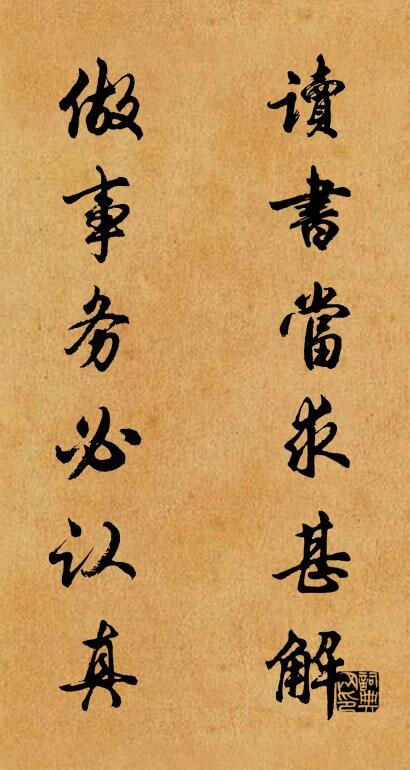 讀書當求甚解
做事务必认真